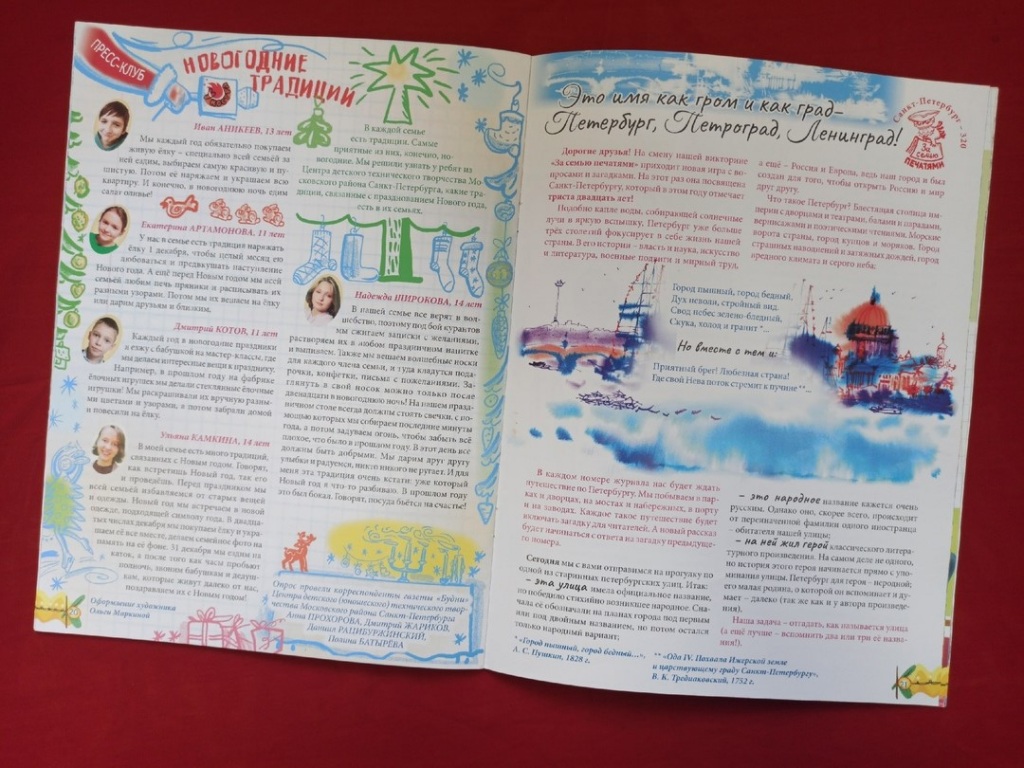 ПРЕСС-КЛУБ
НОВОГОДНИЕ
ТРАДИЦИИ
Иван АНИКЕЕВ, 13 лет
Мы каждый год обязательно покупаем
живую ёлку – специально всей семьёй за
ней едим, выбираем самую красивую и пу-
шистую. Потом её наряжаем и украшаем всю
квартиру. И конечно, в новогоднюю ночь едим
салат оливье!
Екатерина АРТАМОНОВА, 11 лет
У нас в семье есть традиция наряжать
ёлку 1 декабря, чтобы целый месяц ею
любоваться и предвкушать наступление
Нового года. А ещё перед Новым годом мы всей
семьёй любим печь пряники и расписывать их
разными узорами. Потом мы их вешаем на ёлку
или дарим друзьям и близким.
Дмитрий КОТОВ, 11 лет
Каждый год в новогодние праздники
я езжу с бабушкой на мастер-классы, где
мы делаем интересные вещи к празднику.
Например, в прошлом году на фабрике
ёлочных игрушек мы делали стеклянные ёлочные
игрушки! Мы раскрашивали их вручную разны-
ми цветами и узорами, а потом забрали домой
и повесили на ёлку.
Ульяна КАМКИНА, 14 лет
В моей семье есть много традиций,
связанных с Новым годом. Говорят,
как встретишь Новый год, так его
и проведёшь. Перед праздником мы
всей семьёй избавляемся от старых вещей
и одежды. Новый год мы встречаем в новой
одежде, подходящей символу года. В двадца-
тых числах декабря мы покупаем ёлку и укра-
шаем её все вместе, делаем семейное фото на
память на её фоне. 31 декабря мы ездим на
каток, а после того как часы пробьют
полночь, звоним бабушкам и дедуш-
кам, которые живут далеко от нас,
поздравляем их с Новым годом!
Оформление художника
Ольги Маркиной
В каждой семье
есть традиции. Самые
приятные из них, конечно, но-
вогодние. Мы решили узнать у ребят из
Центра детского технического творчества Мо-
сковского района Санкт-Петербурга, какие тра-
диции, связанные с празднованием Нового года,
есть в их семьях.
Надежда ШИРОКОВА, 14 лет
В нашей семье все верят в вол-
шебство, поэтому под бой курантов
мы сжигаем записки с желаниями,
растворяем их в любом праздничном напитке
и выпиваем. Также мы вешаем волшебные носки
для каждого члена семьи, и туда кладутся пода-
рочки, конфетки, письма с пожеланиями. За-
глянуть в свой носок можно только после
двенадцати в новогоднюю ночь! На нашем празд-
ничном столе всегда должны стоять свечки, с по-
мощью которых мы собираем последние минуты
года, а потом задуваем огонь, чтобы забыть всё
плохое, что было в прошлом году. В этот день все
должны быть добрыми. Мы дарим друг другу
улыбки и радуемся, никто никого не ругает. И для
меня эта традиция очень кстати: уже который
Новый год я что-то разбиваю. В прошлом году
это был бокал. Говорят, посуда бьётся на счастье!
Опрос провели корреспонденты газеты «Будни»
Центра детского (юношеского) технического твор-
чества Московского района Санкт-Петербурга
Анна ПРОХОРОВА, Дмитрий ЖАРИКОВ,
Даниил РАЦИБУРЖИНСКИЙ,
Полина БАТЫРЁВА
Это имя как гром и как град–
Петербург, Петроград, Ленинград!
Санкт-Петербургу – 320
За
семью
ПЕЧАТЯМИ
Дорогие друзья! На смену нашей викторине
«За семью печатями» приходит новая игра с во-
просами и загадками. На этот раз она посвящена
Санкт-Петербургу, который в этом году отмечает
триста двадцать лет!
Подобно капле воды, собирающей солнечные
лучи в яркую вспышку, Петербург уже больше
трёх столетий фокусирует в себе жизнь нашей
страны. В его истории – власть и наука, искусство
и литература, военные подвиги и мирный труд,
а ещё – Россия и Европа, ведь наш город и был
создан для того, чтобы открыть Россию и мир
друг другу.
Что такое Петербург? Блестящая столица им-
перии с дворцами и театрами, балами и парадами,
вернисажами и поэтическими чтениями. Морские
ворота страны, город купцов и моряков. Город
страшных наводнений и затяжных дождей, город
вредного климата и серого неба:
Город пышный, город бедный,
Дух неволи, стройный вид,
Свод небес зелено-бледный,
Скука, холод и гранит*...
Но вместе с тем и:
Приятный брег! Любезная страна!
Где свой Нева поток стремит к пучине**...
В каждом номере журнала нас будет ждать
путешествие по Петербургу. Мы побываем в пар-
ках и дворцах, на мостах и набережных, в порту
и на заводах. Каждое такое путешествие будет
включать загадку для читателей. А новый рассказ
будет начинаться с ответа на загадку предыдуще-
го номера.
Сегодня мы с вами отправимся на прогулку по
одной из старинных петербургских улиц. Итак:
– эта улица имела официальное название,
но победило стихийно возникшее народное. Сна-
чала её обозначали на планах города под первым
или под двойным названием, но потом остался
только народный вариант;
– это народное название кажется очень
русским. Однако оно, скорее всего, происходит
от переиначенной фамилии одного иностранца
– обитателя нашей улицы;
– на ней жил герой классического литера-
турного произведения. На самом деле не одного,
но текст истории этого героя начинается прямо с упо-
минания улицы. Петербург для героя – неродной;
его малая родина, о которой он вспоминает и ду-
мает – далеко (так же как и у автора произведе-
ния).
Наша задача – отгадать, как называется улица
(а ещё лучше – вспомнить два или три её назва-
ния!).
* «Город пышный, город бедный...»,
А. С. Пушкин, 1828 г.
** «Ода IV. Похвала Ижерской земле
и царствующему граду Санкт-Петербургу»,
В. К. Тредиаковский, 1752 г.